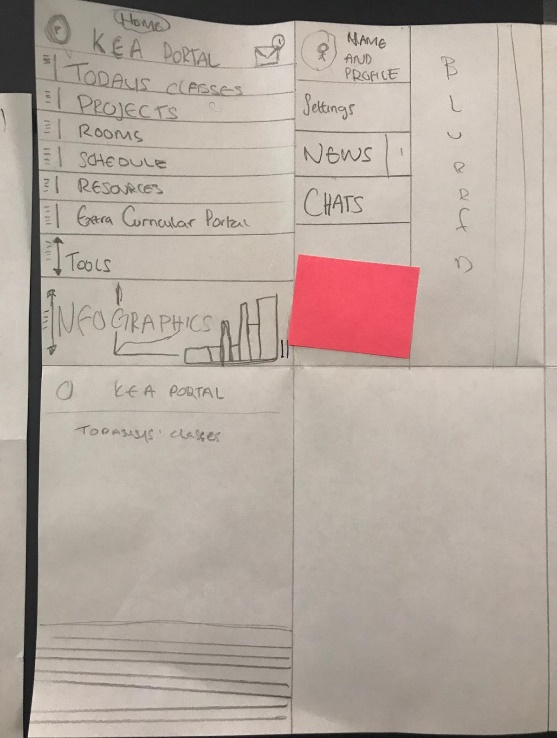 Home
KEA PORTAL
TODAYS CLASSES
PROJECTS
ROOMS
SCHEDULE
RESOURCES
Extra Curricular Portal
Tools
INFOGRAPHICS
NAME
AND
PROFILE
Settings
NEWS
CHATS
B
L
U
R
R
E
D
KEA PORTAL
classes